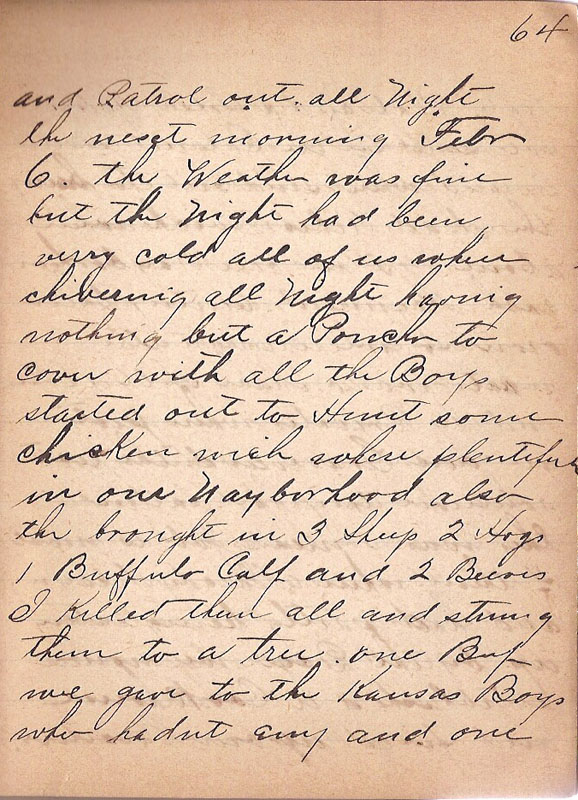 64
and Patrol out. all Night
the next morning Febr
6. the Weather was fine
but the Night had been
verry cold all of us when
chivernig all Night havnig
nothing but a Poncho to
cover with all the Boys
started out to Hunt some
chicken wich where plentiful
in our Nayborhood also
the brought in 3 Sheep 2 Hogs
1 Buffulo Calf and 2 Beeves
I Killed than all and strung
them to a tree. one Beef
we gave to the Kansas Boys
who hadnt any and one